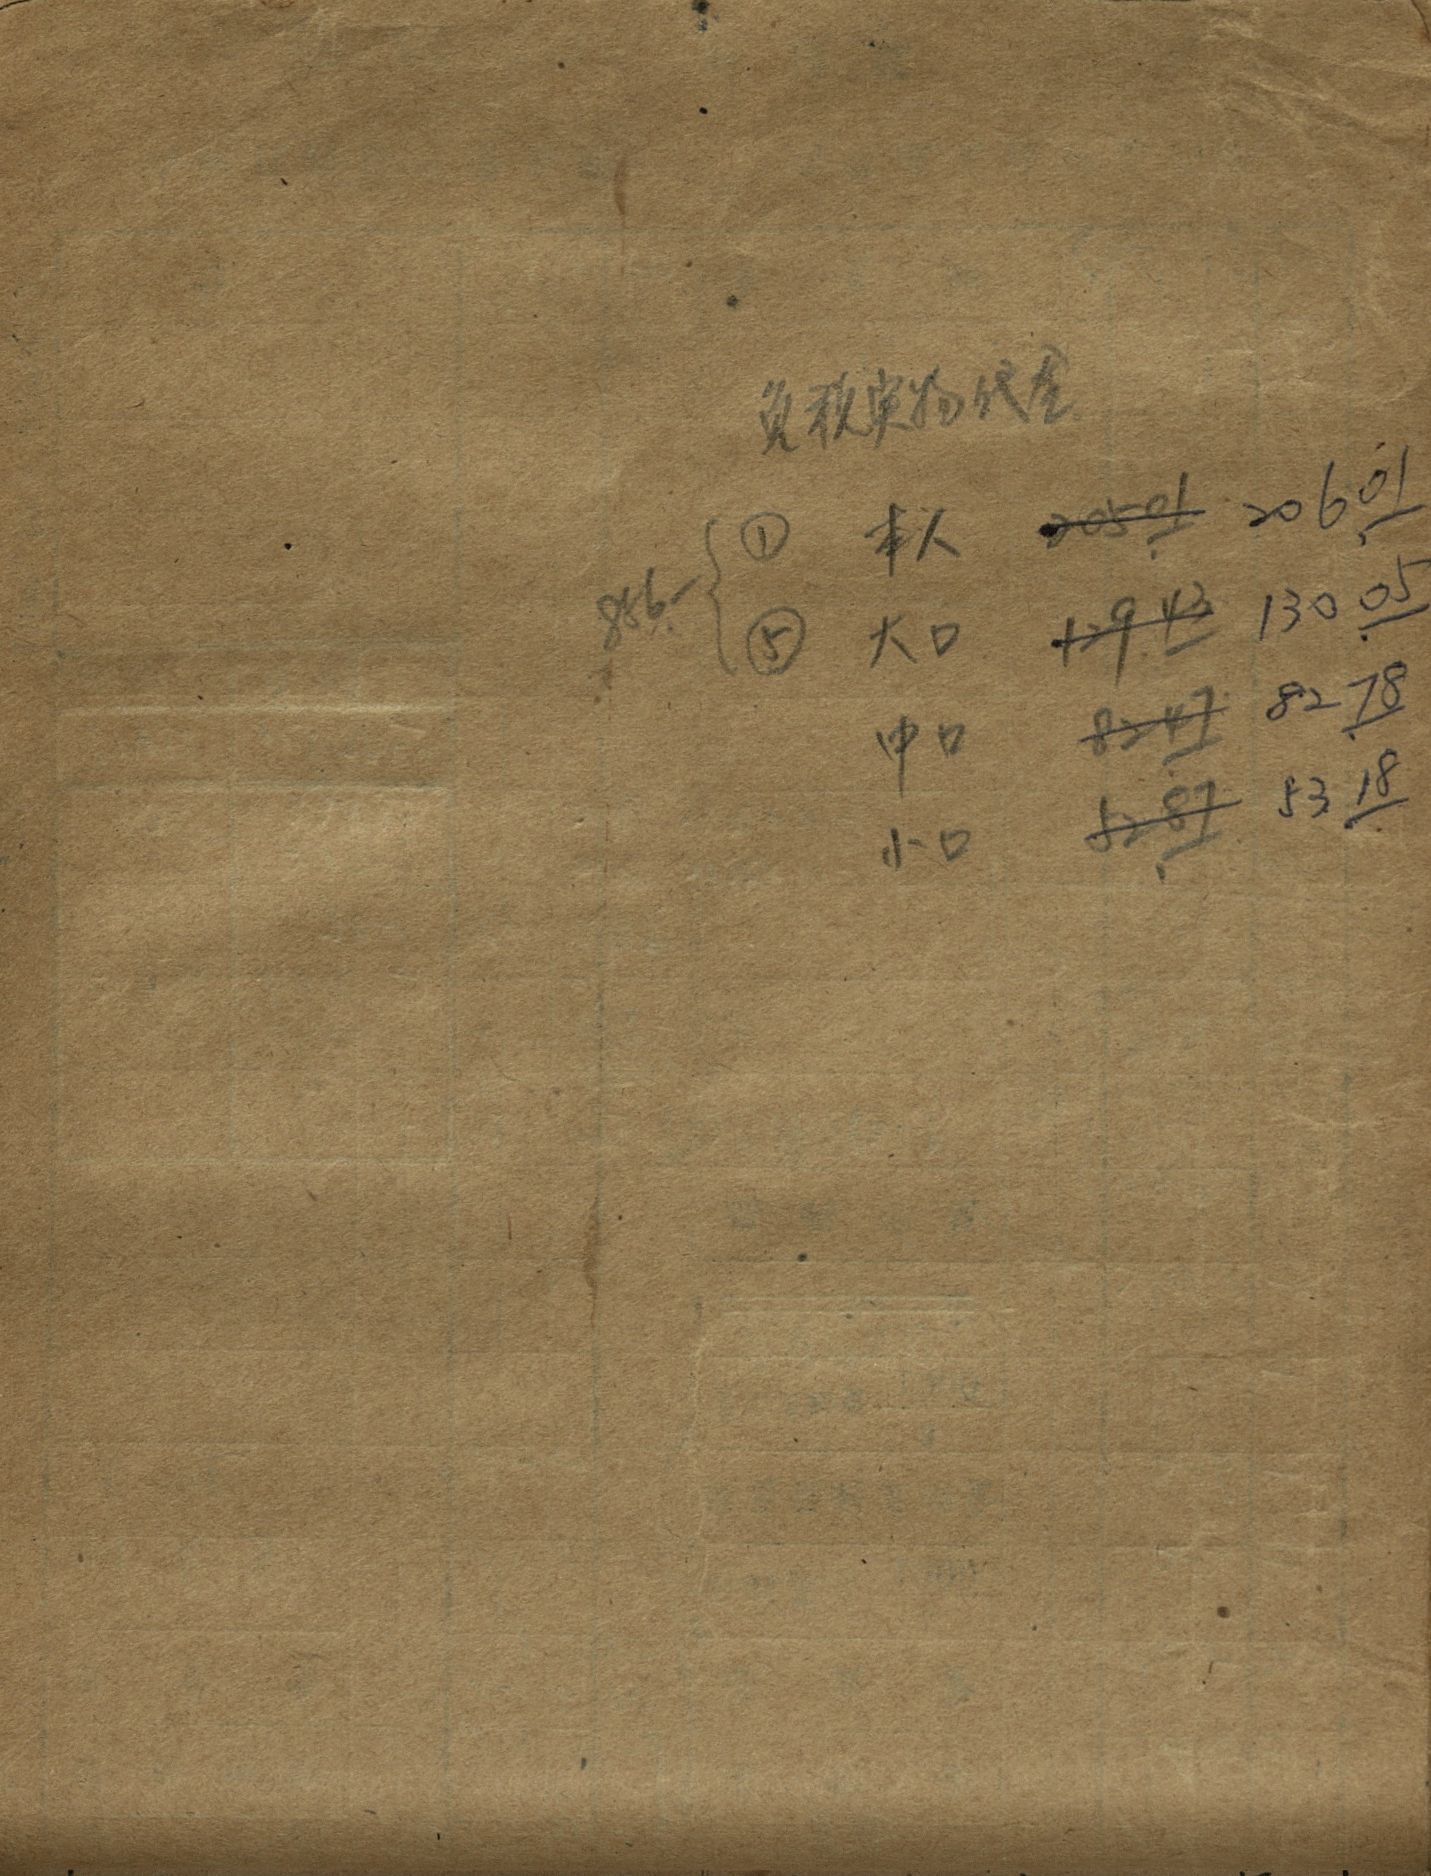 免税実物代金
① 本人 20501 20601
856.
⑤ 大口 129.43 13005
中口 8247 8278
小口 5287 5318